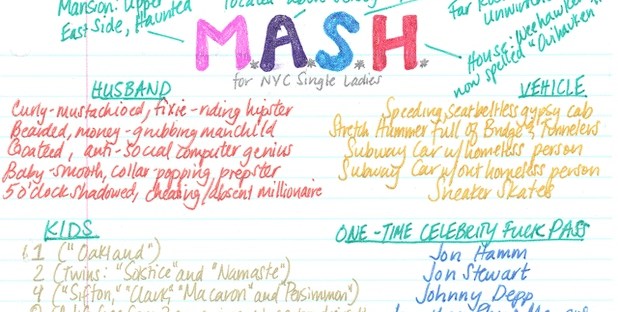 Mansion: Upper
East Side, Haunted
located above
Far Rock
M.A.S.H.
for NYC Single Ladies
House: Weehawken
now spelled "Ovihauken"
HUSBAND
Curly-mustachioed, fixie-riding hipster
Bearded, money-grubbing manchild
Goateed, anti-social computer genius
Baby-smooth, collar-popping prepster
5 o'clock shadowed, cheating/absent millionaire
VEHICLE
Speeding, seatbeltless gypsy cab
Stretch Hummer full of Bridge & Tunnelers
Subway Car w/homeless person
Subway Car w/out homeless person
Sneaker Skates
KIDS
1 ("Oakland")
2 (Twins: "Solstice" and "Namaste")
4 ("Sifton," "Clark," "Macaron" and "Persimman")
ONE-TIME CELEBRITY FUCK PASS
Jon Hamm
Jon Stewart
Johnny Depp